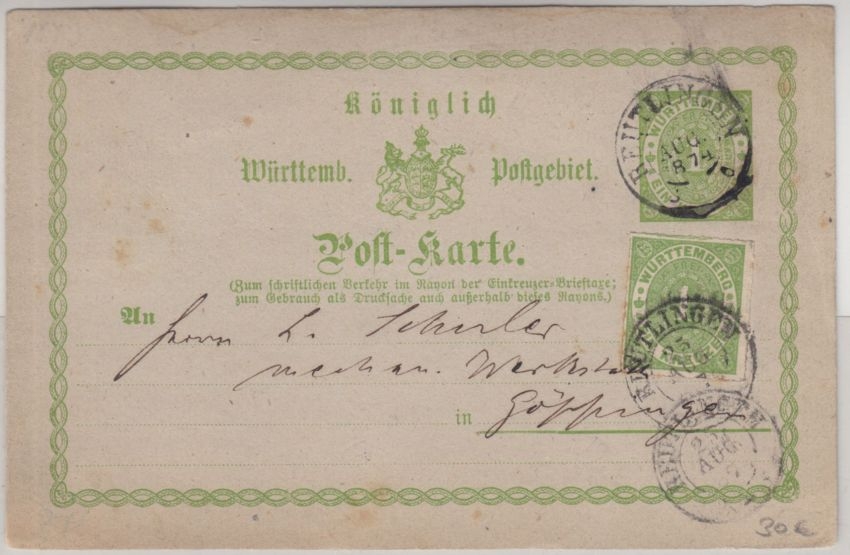 Königlich
Württemb. Postgebiet.
Post-Karte.
(Zum schriftlichen Verkehr im Rayon der Einkreuzer-Brieftaxe;
zum Gebrauch als Drucksache auch außerhalb dieses Rayons.)
An
Herrn L. Schuler
mechan. Werkst
in Göppingen
WÜRTTEMBERG
EIN
1
REUTLINGEN
AUG
WÜRTTEMBERG
1
REUTLINGEN
AUG
REUTLINGEN
AUG
30 €